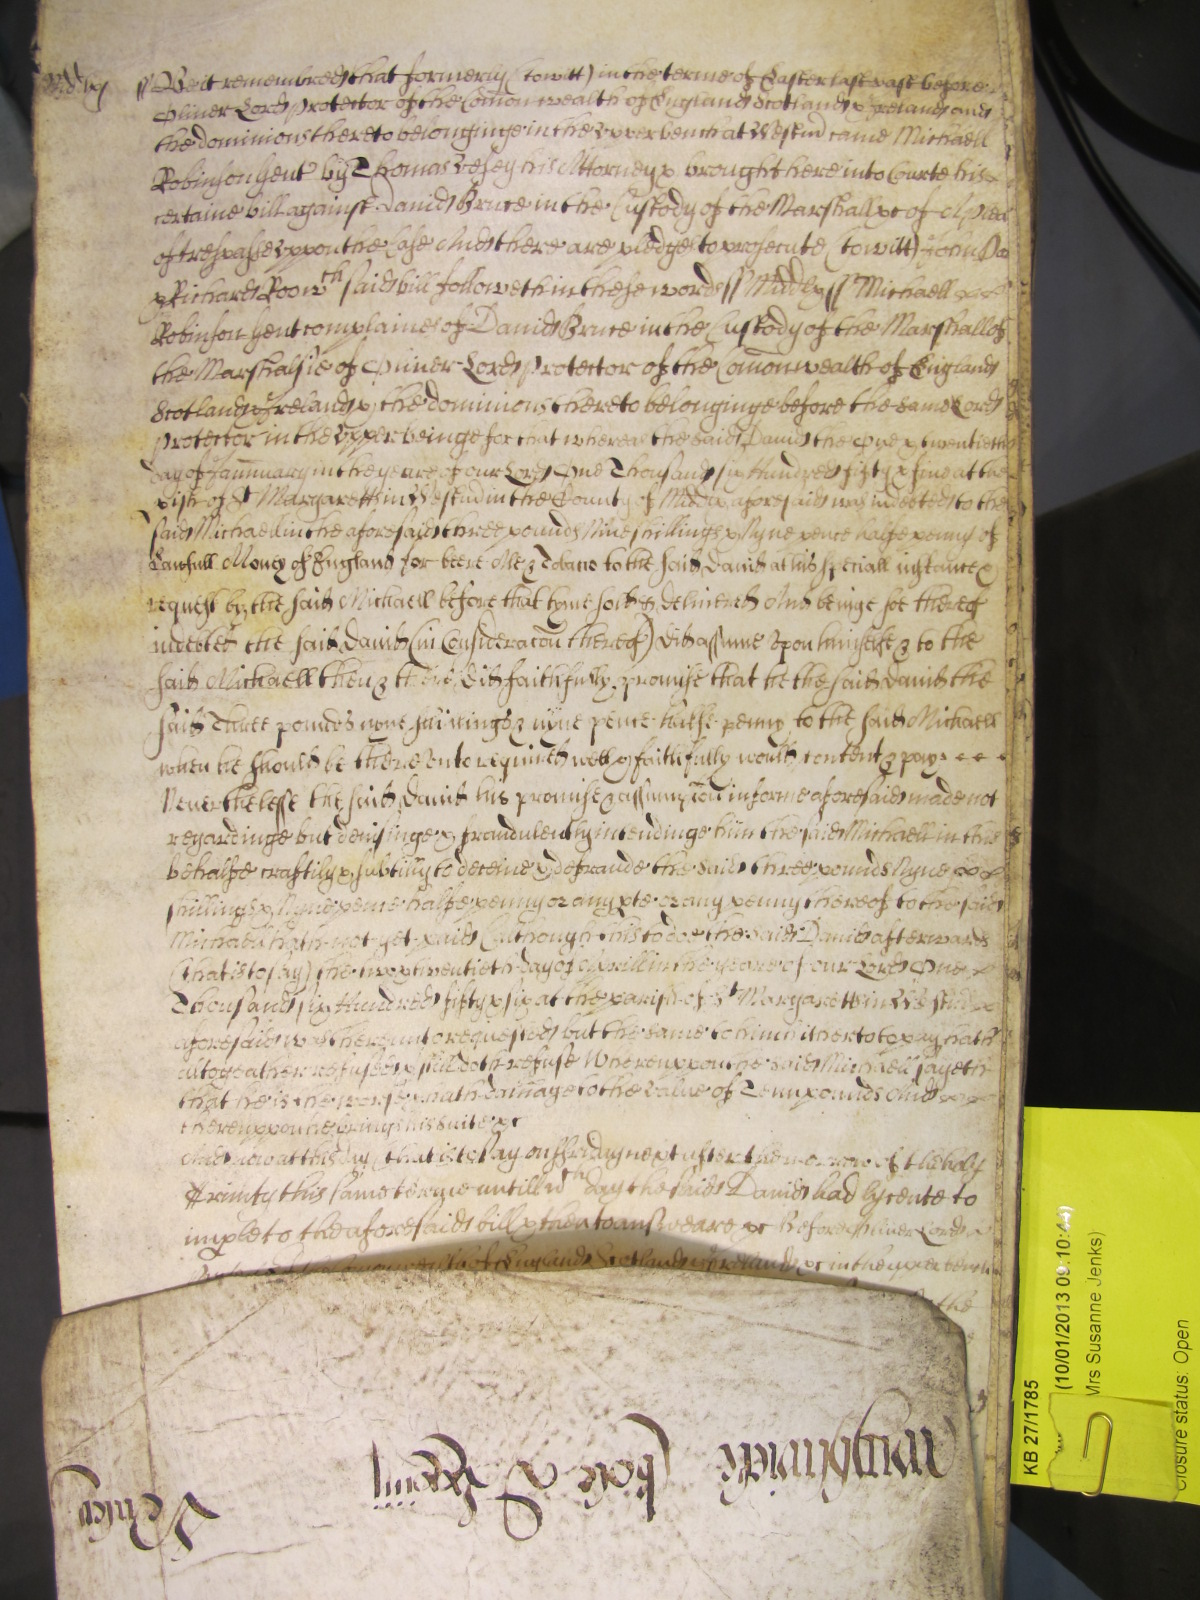 Midd ss
Be it remembred that formerly (towitt) in the terme of Easter last past before
Oliver Lord Protector of the Comon wealth of England Scotland & Ireland and
the dominions thereto belonginge in the upper bench at Westm came Michaell
Robinson gent by Thomas Vesey his Attorney & brought here into Courte his
certaine bill against David Bruce in the Custody of the Marshall &c of A plea
of trespasse uppon the Case And there are pledges to prosecute (towitt) John Doe
& Richard Roo wch said bill followeth in these words ss Midd ss Michaell
Robinson gent complaines of David Bruce in the Custody of the Marshall of
the Marshalsie of Oliver Lord Protector of the Comonwealth of England
Scotland & Ireland & the dominions thereto belonginge before the same Lord
Protector in the upper beinge for that whereas the said David the One & twentieth
day of January in the yeare of our Lord One Thousand six Hundred fifty & five at the
pish of St Margaretts in Westm in the County of Midd aforesaid was indebted to the
said Michaell in the aforesaid three pounds Nine shillings & Nyne pence halfe penny of
Lawfull Money of England for beere Ale & Tobacco to the said David at his speciall instance &
request by the said Michaell before that tyme sold & delivered And beinge soe thereof
indebted the said David (in Consideracon thereof) did assume upon himselfe & to the
said Michaell then & there did faithfully promise that he the said David the
said Three pounds nyne shillings & nyne pence halfe penny to the said Michaell
when he should be thereunto required well & faithfully would content & pay
Neverthelesse the said David his promise & assumpcon in forme aforesaid made not
regardinge but devisinge & fraudulently intendinge him the said Michaell in this
behalfe craftily & subtilly to deceive & defraude the said three pounds Nyne
shillings & Nyne pence halfe penny or any pte or any penny thereof to the said
Michaell hath not yet paid (Although this to doe the said David afterwards
(that is to say) the two & twentieth day of Aprill in the yeare of our Lord One
Thousand six Hundred fifty & six at the parish of St Margaretts in Westm
aforesaid was thereunto requested but the same to him hitherto to pay hath
altogeather refused & still doth refuse Whereuppon the said Michaell sayeth
that he is the worse & hath damage to the value of Tenn pounds And
thereuppon he brings his suite &c
And now at this day (that is to say on Friday next after the morrow of the holy
Trinity this same terme untill wch day the said David had lycence to
imple to the aforesaid bill & then to answeare &c Before Oliver Lord
of England Scotland & Ireland &c in the upper bench
the
KB 27/1785
(10/01/2013 09:10:44)
Mrs Susanne Jenks)
Closure status: Open